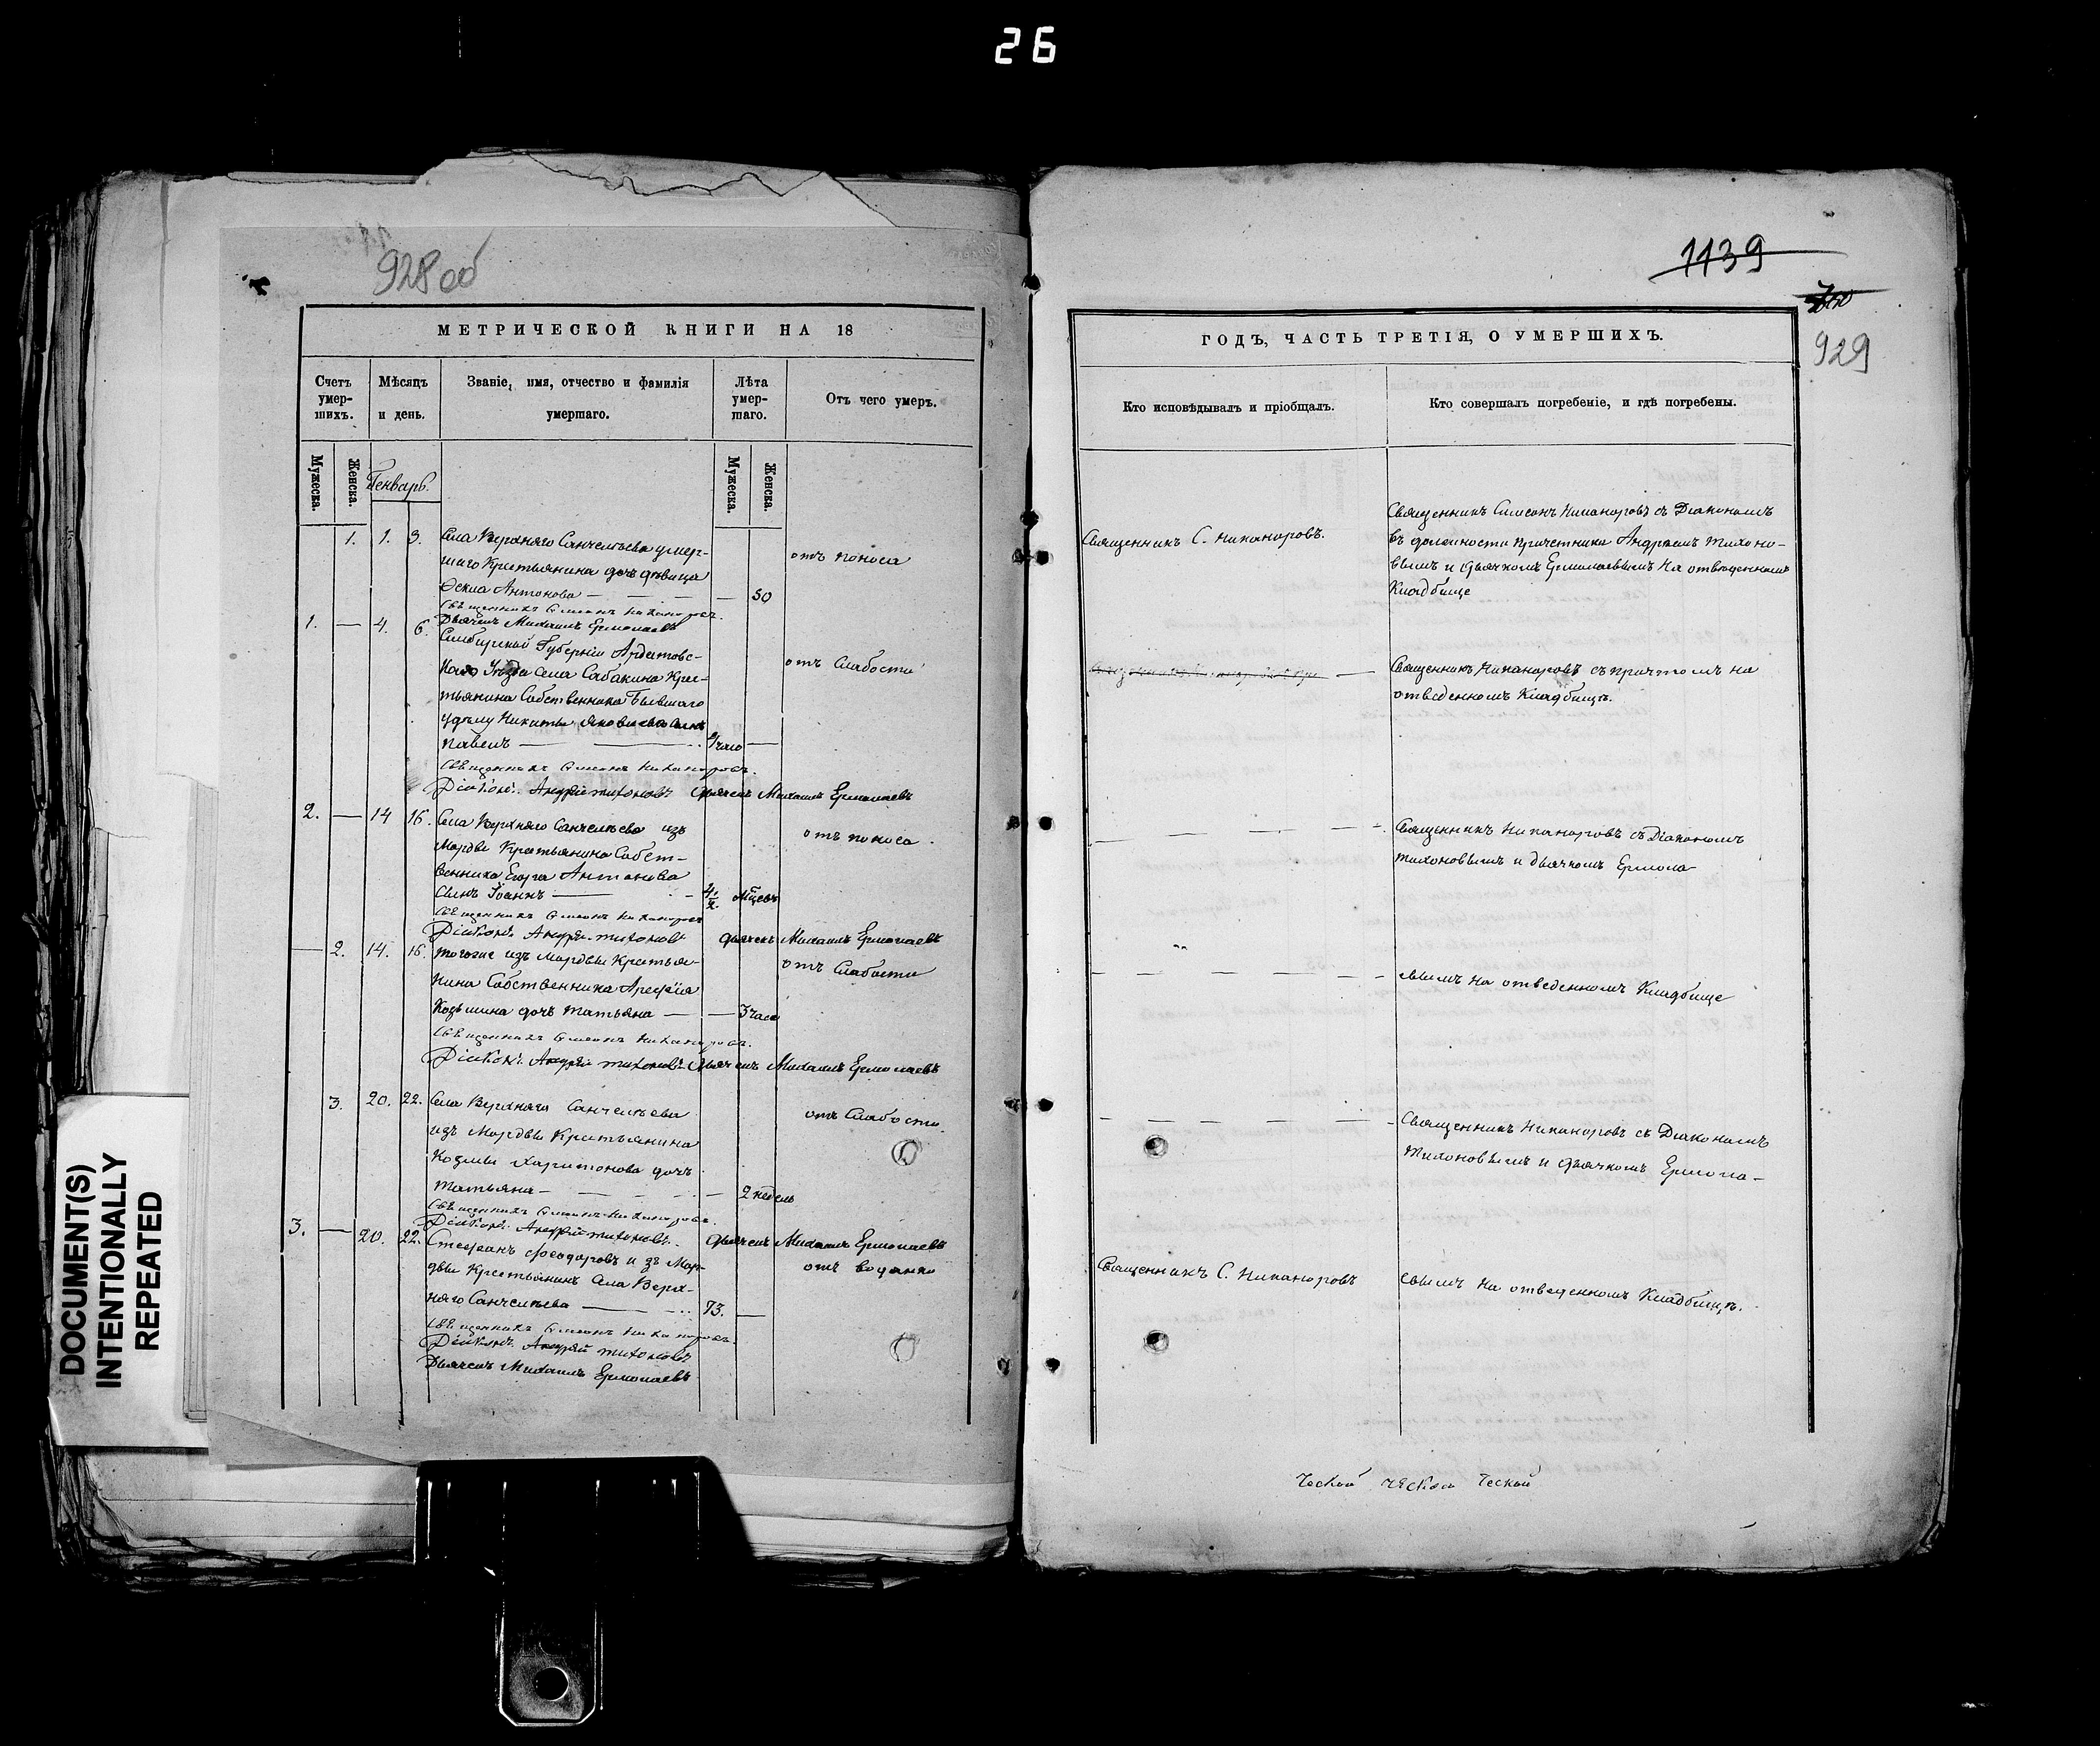 26
928 об
МЕТРИЧЕСКОЙ КНИГИ НА 18
Счетъ умер-шихъ.
Мѣсяцъ и день.
Званіе, имя, отчество и фамилія умершаго.
Лѣта умер-шаго.
Отъ чего умеръ.
Мужеска.
Женска.
Генварь.
Мужеска.
Женска.
1. 1. 3. Села Верхняго Санчелѣева умер-
шаго Крестьянина дочь дѣвица
Антонова — — — — 50
отъ поноса
Священникъ Симеонъ Никаноровъ.
Дьячекъ Михаилъ Ермолаевъ
1. — 4. 6. Симбирской Губерніи Ардатовс-
каго Уѣзда села Сабакина Крес-
тьянина Собственника бывшаго
удѣлу Никиты Яковлева сынъ
Павелъ — — часо —
отъ Слабости
Священникъ Симеонъ Никаноровъ.
Діаконъ Андрей Тихоновъ Дьячекъ Михаилъ Ермолаевъ
2. — 14 16. Села Верхняго Санчелѣева изъ
Мордвы Крестьянина Собст-
венника Егора Антонова
сынъ Іоаннъ — мѣсцевъ
отъ поноса.
Священникъ Симеонъ Никаноровъ
Діаконъ Андрей Тихоновъ Дьячекъ Михаилъ Ермолаевъ
— 2. 14. 16. Тогоже изъ Мордвы Крестья-
нина Собственника Арефія
Козьмина дочь Татьяна — — 3 часа
отъ Слабости
Священникъ Симеонъ Никаноровъ.
Діаконъ Андрей Тихоновъ Дьячекъ Михаилъ Ермолаевъ
3. 20. 22. Села Верхняго Санчелѣева
изъ Мордвы Крестьянина
Козмы Харитонова дочь
Татьяна — — — — 2 недель
отъ Слабости.
Священникъ Симеонъ Никаноровъ.
Діаконъ Андрей Тихоновъ. Дьячекъ Михаилъ Ермолаевъ
3. — 20. 22. Стефанъ Феодоровъ изъ Мор-
двы Крестьянинъ Села Верх-
няго Санчелѣева — 73. —
отъ водянки
Священникъ Симеонъ Никаноровъ.
Діаконъ Андрей Тихоновъ
Дьячекъ Михаилъ Ермолаевъ
DOCUMENT(S)
INTENTIONALLY
REPEATED
1139
929
ГОДЪ, ЧАСТЬ ТРЕТІЯ, О УМЕРШИХЪ.
Кто исповѣдывалъ и пріобщалъ.
Кто совершалъ погребеніе, и гдѣ погребены.
Священникъ С. Никаноровъ.
Священникъ Симеонъ Никаноровъ съ Діакономъ
въ должности причетника Андреемъ Тихоно-
вымъ и дьячкомъ Ермолаевымъ на отведенномъ
Кладбище
Священникъ Никаноровъ съ причтомъ на
отведенномъ Кладбищѣ.
Священникъ Никаноровъ съ Діакономъ
Тихоновымъ и дьячкомъ Ермола-
евымъ на отведенномъ Кладбище
Священникъ Никаноровъ съ Діакономъ
Тихоновымъ и дьячкомъ Ермола-
Священникъ С. Никаноровъ
евымъ на отведенномъ Кладбищѣ.
ческой ческой ческой